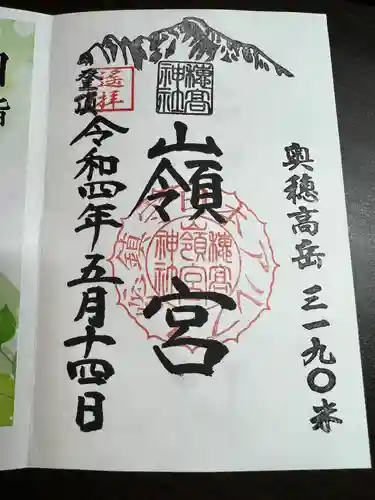 奥穂高岳 三一九〇米
穂高神社
嶺宮
穂高神社嶺宮
遙拝
登頂
令和四年五月十四日